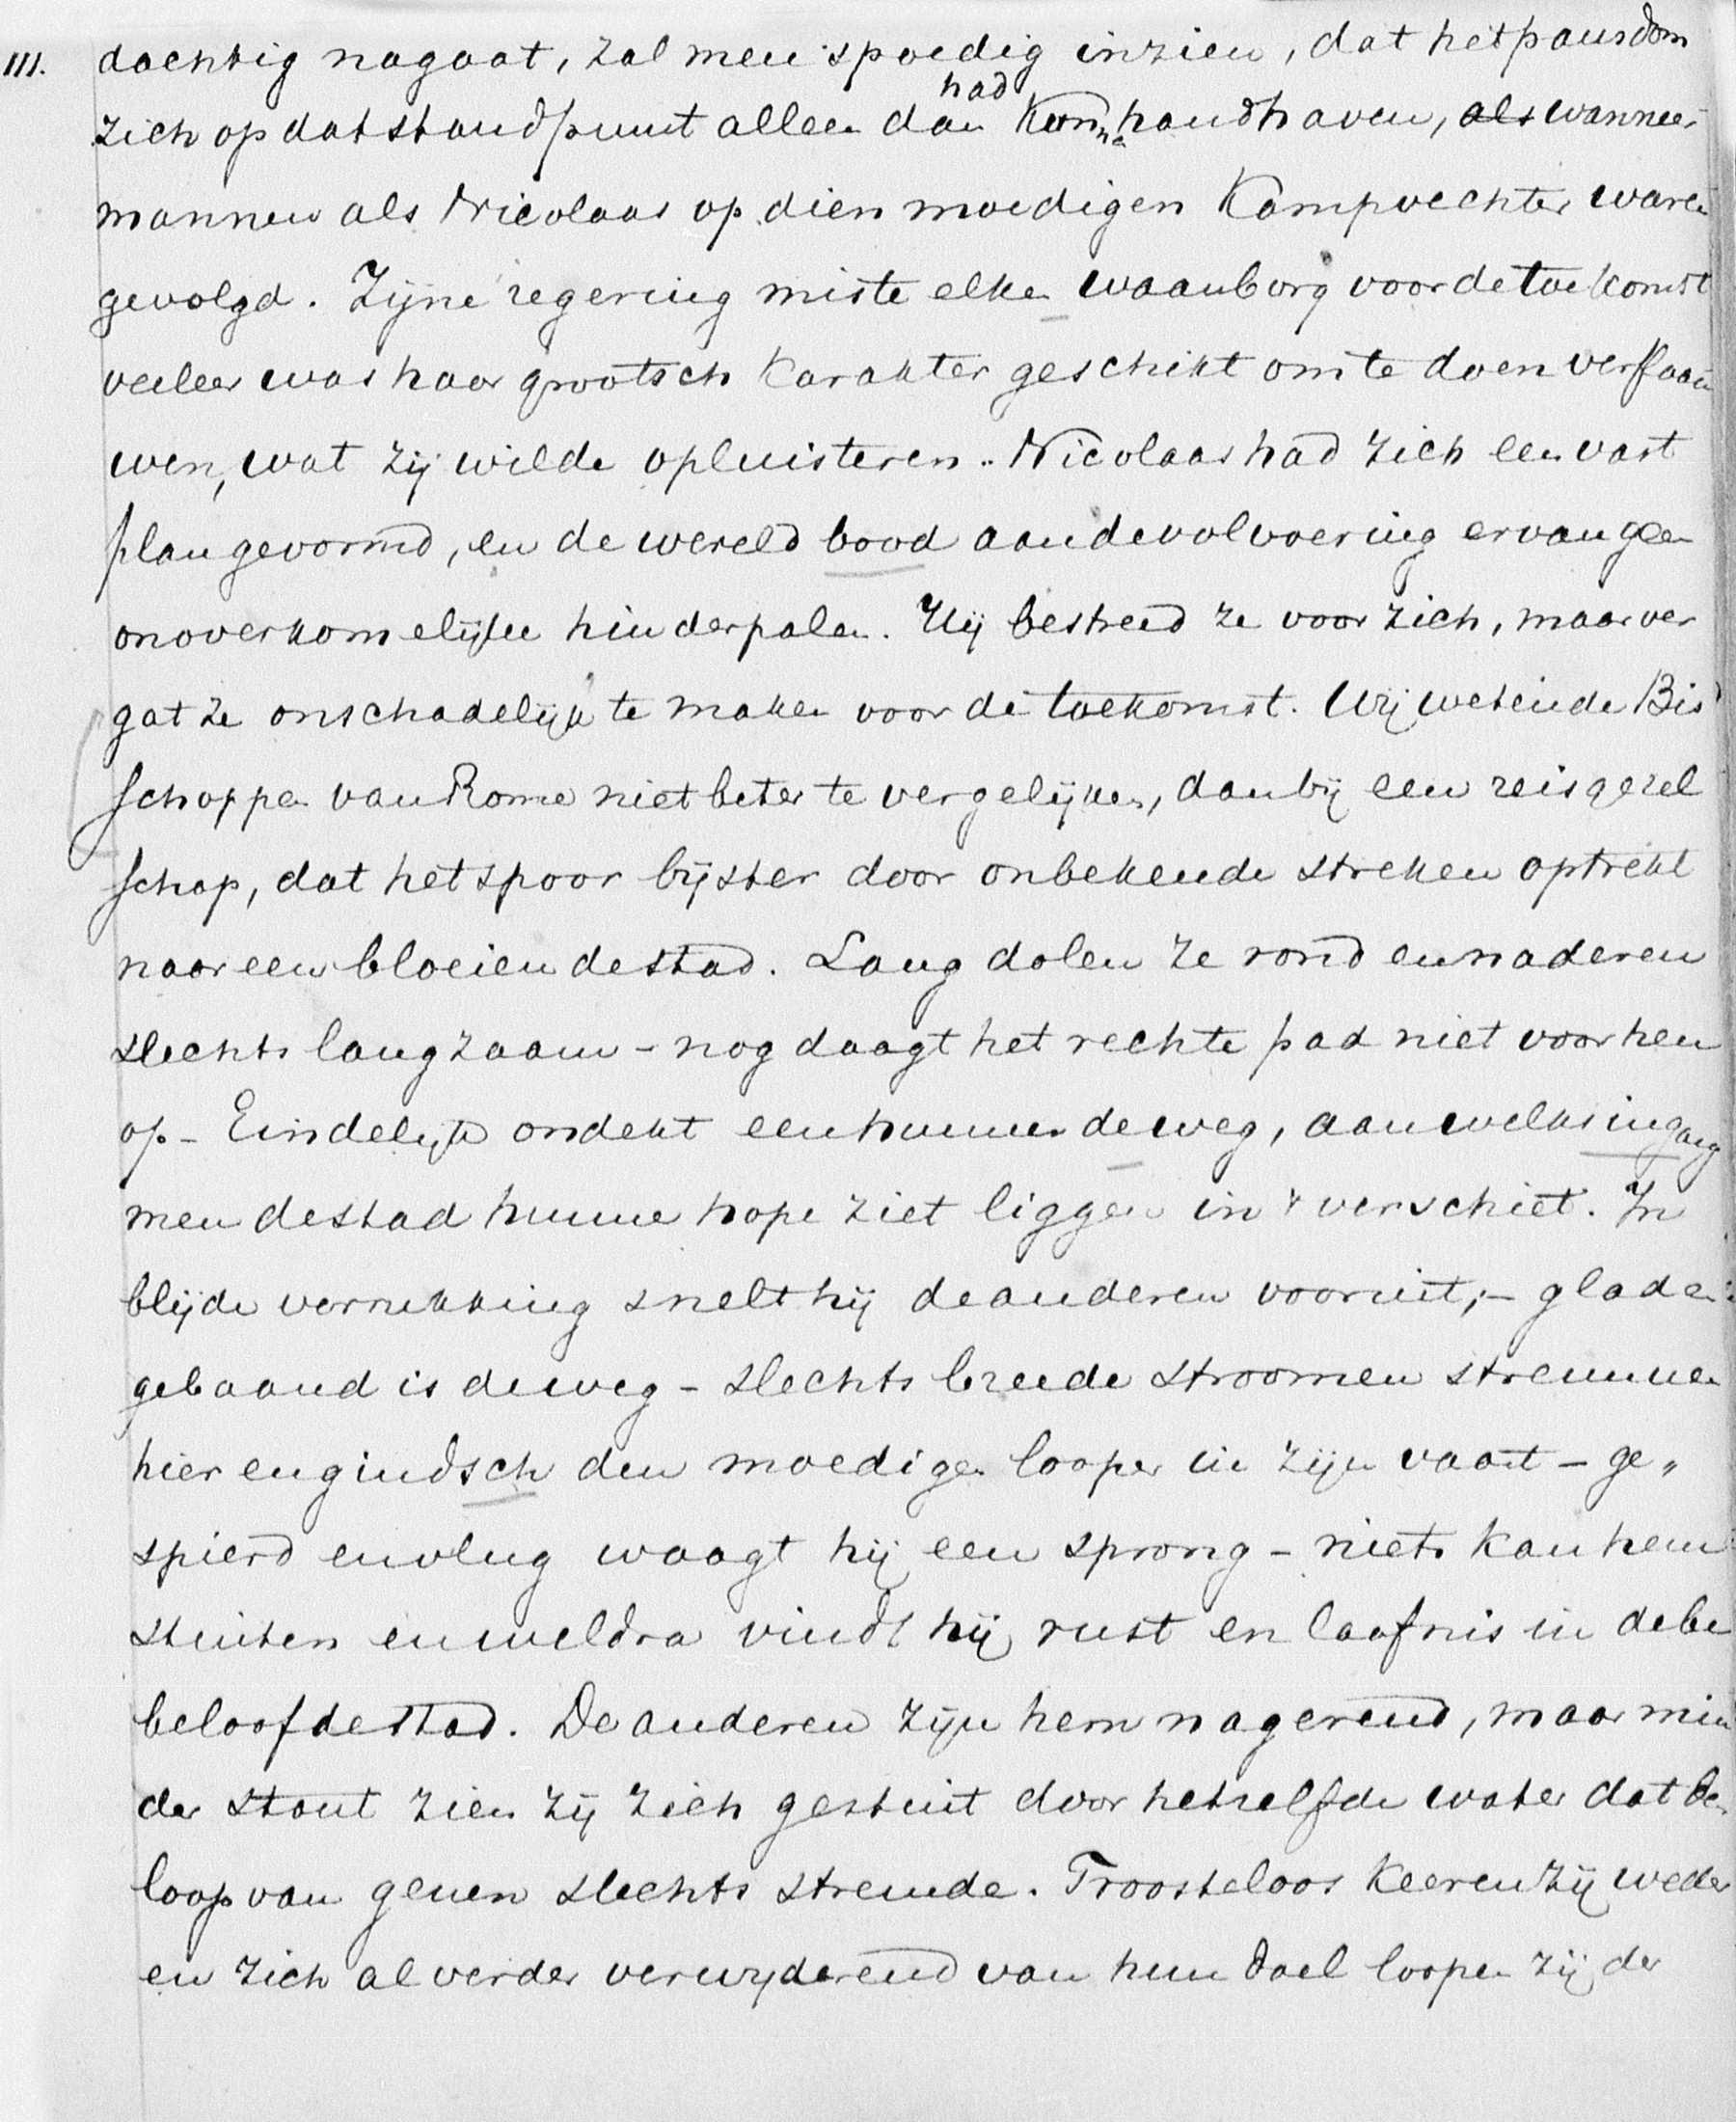 111. dachtig nagaat, zal men spoedig inzien, dat het pausdom
had
zich op dat standpunt alleen dan konne handhaven, als wanneer
mannen als Nicolaas op dien moedigen Kampvechter waren
gevolgd. Zijne regering miste elken waarborg voor de toekomst
veeleer was haar grootsch karakter geschikt om te doen verflaau
wen, wat zij wilde opluisteren. Nicolaas had zich een vast
plan gevormd, en de wereld bood aan de volvoering ervan geen
onoverkomelijke hinderpalen. Hij bestreed ze voor zich, maar ver
gat ze onschadelijk te maken voor de toekomst. Wij weten de Bis
schoppen van Rome niet beter te vergelijken, dan bij een reisgezel
schap, dat het spoor bijster door onbekende streken optrekt
naar een bloeiende stad. Lang dolen ze rond en naderen
slechts langzaam - nog daagt het rechte pad niet voor hen
op - Eindelijk ondekt een hunner de weg, aan welks ingang
men de stad hunne hope ziet liggen in 't verschiet. In
blijde verrukking snelt hij de anderen vooruit; - glad en
gebaand is de weg - slechts breede stroomen stremmen
hier en gindsch den moedigen looper in zijn vaart - ge„
spierd en vlug waagt hij een sprong - niets kan hem
stuiten en weldra vindt hij rust en laafnis in de be
beloofde stad. De anderen zijn hem nagerend, maar min
der stout zien zij zich gestuit door hetzelfde water dat den
loop van genen slechts stremde. Troosteloos keeren zij weder
en zich al verder verwijderend van hun doel loopen zij der